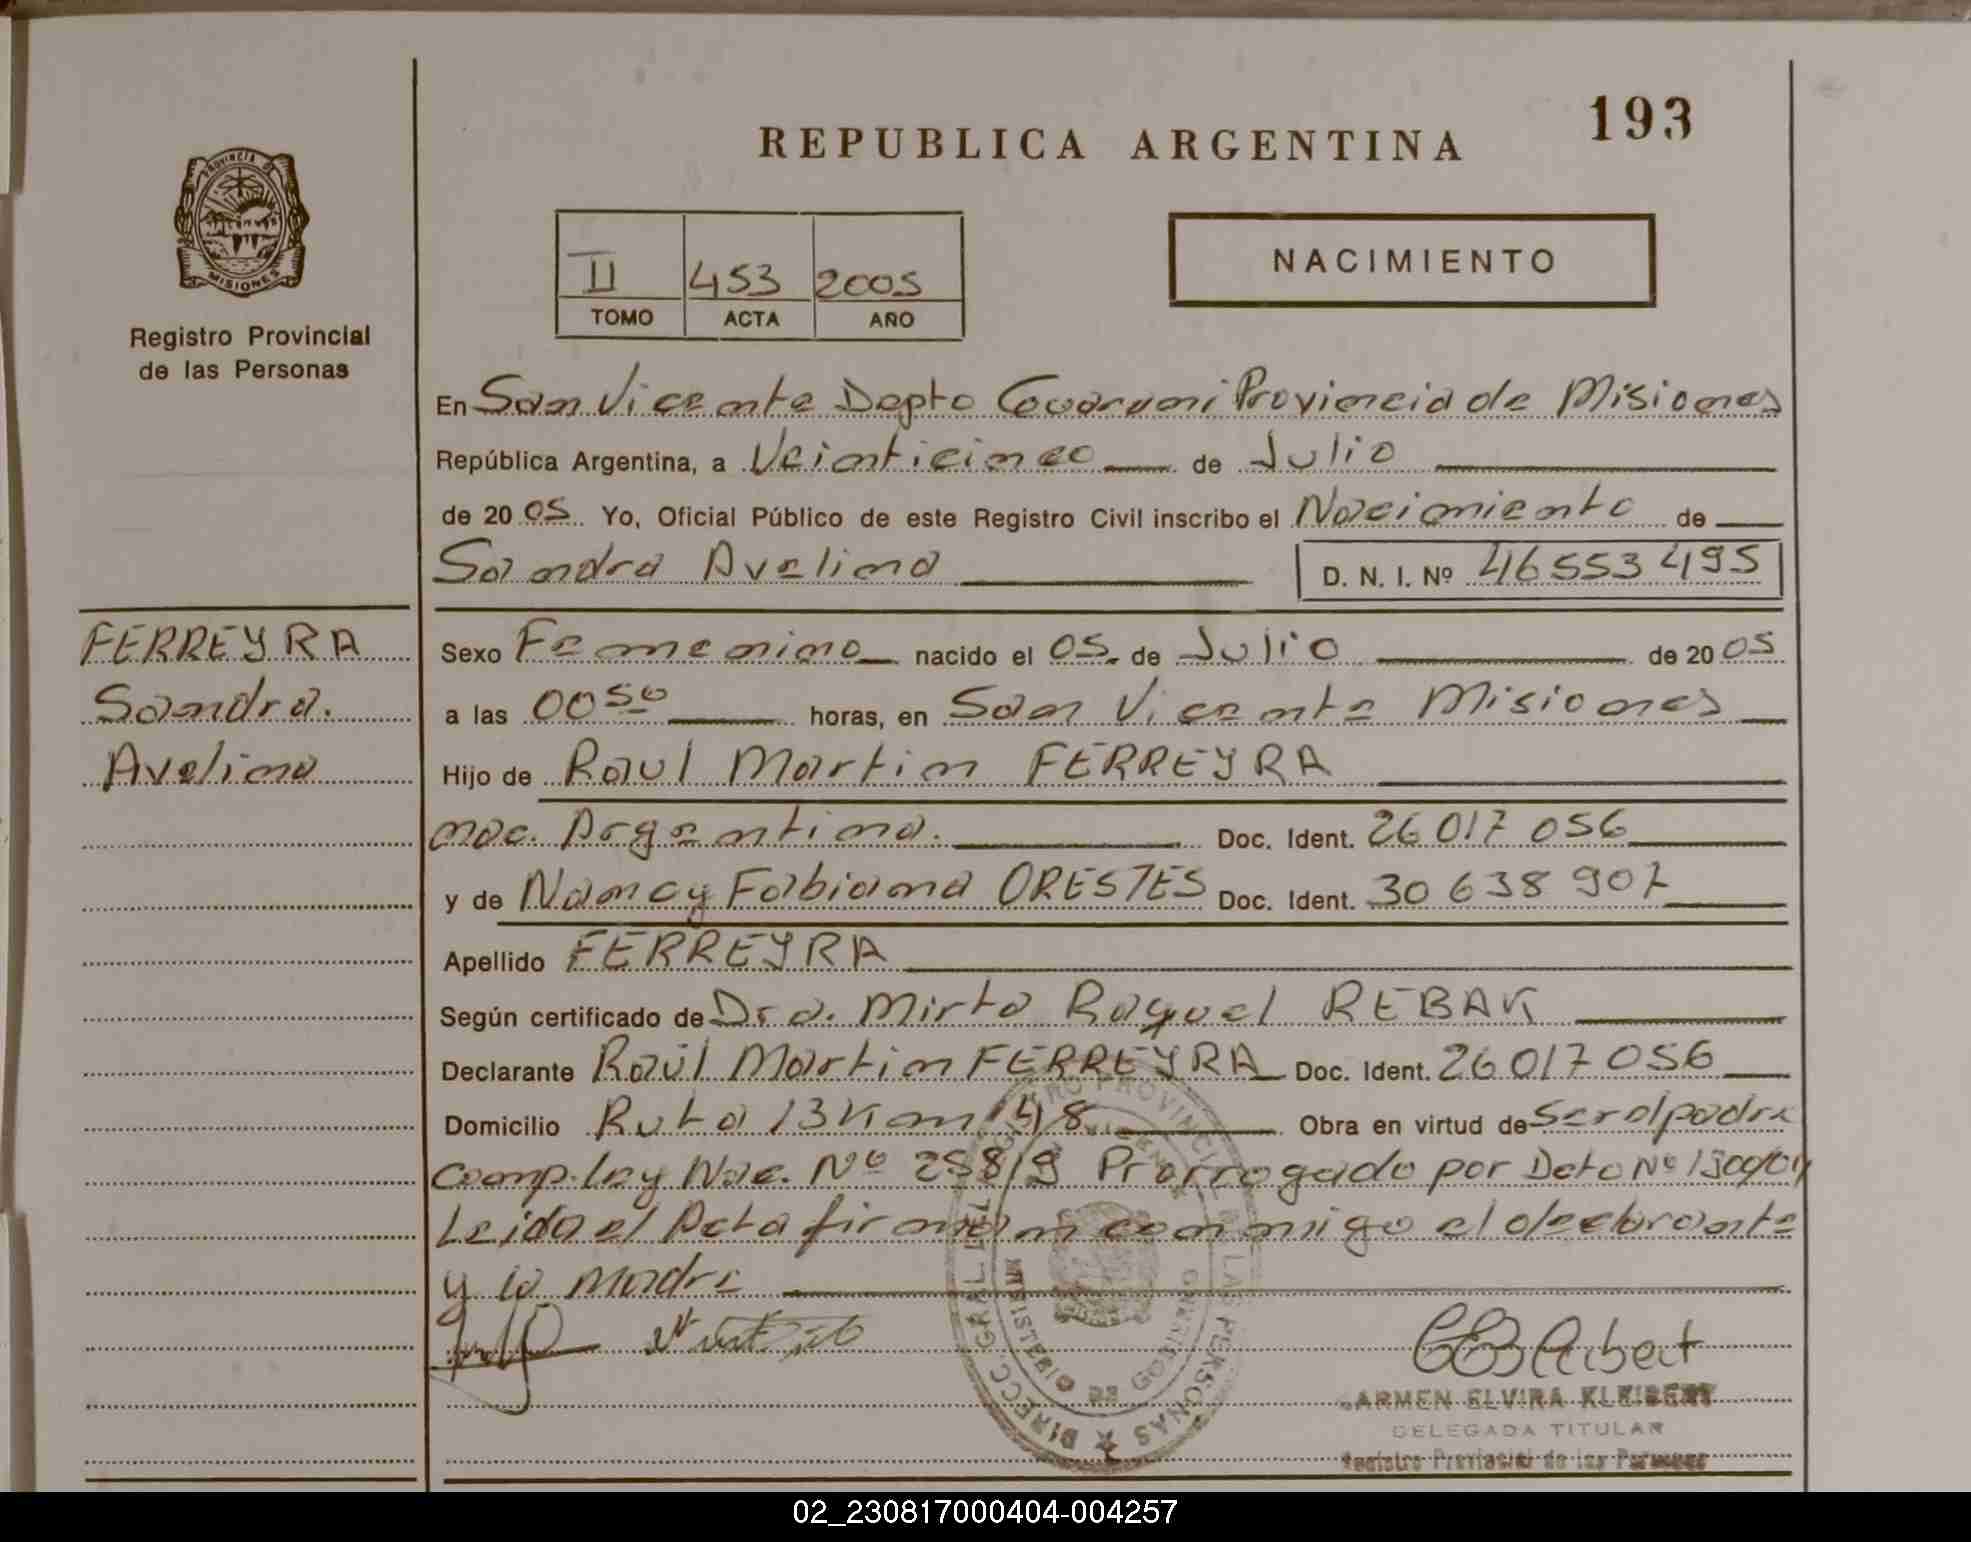 193
REPUBLICA ARGENTINA
PROVINCIA DE
MISIONES
Registro Provincial
de las Personas
NACIMIENTO
II 453 2005
TOMO ACTA AÑO
En San Vicente Depto Guarani Provincia de Misiones
República Argentina, a Veinticinco de Julio
de 2005 Yo, Oficial Público de este Registro Civil inscribo el Nacimiento de
Sandra Avelina D. N. I. Nº 46553495
FERREYRA
Sandra.
Avelina
Sexo Femenino nacido el 05. de Julio de 2005
a las 00 50 horas, en San Vicente Misiones
Hijo de Raul Martin FERREYRA
nac. Argentina. Doc. Ident. 26 017 056
y de Nancy Fabiana ORESTES Doc. Ident. 30 638 907
Apellido FERREYRA
Según certificado de Dra. Mirta Raquel REBAK
Declarante Raúl Martin FERREYRA Doc. Ident. 26 017 056
Domicilio Ruta 13 Km 148 Obra en virtud de Ser el padre
comp. ley Nac. Nº 25819 Prorrogado por Dcto Nº
Leida el Acta firman conmigo el declarante
y la madre
DIRECC. GRAL. DEL REGISTRO PROVINCIAL DE LAS PERSONAS
MINISTERIO DE GOBIERNO
CARMEN ELVIRA KLEIBERT
DELEGADA TITULAR
Registro Provincial de las Personas
02_230817000404-004257